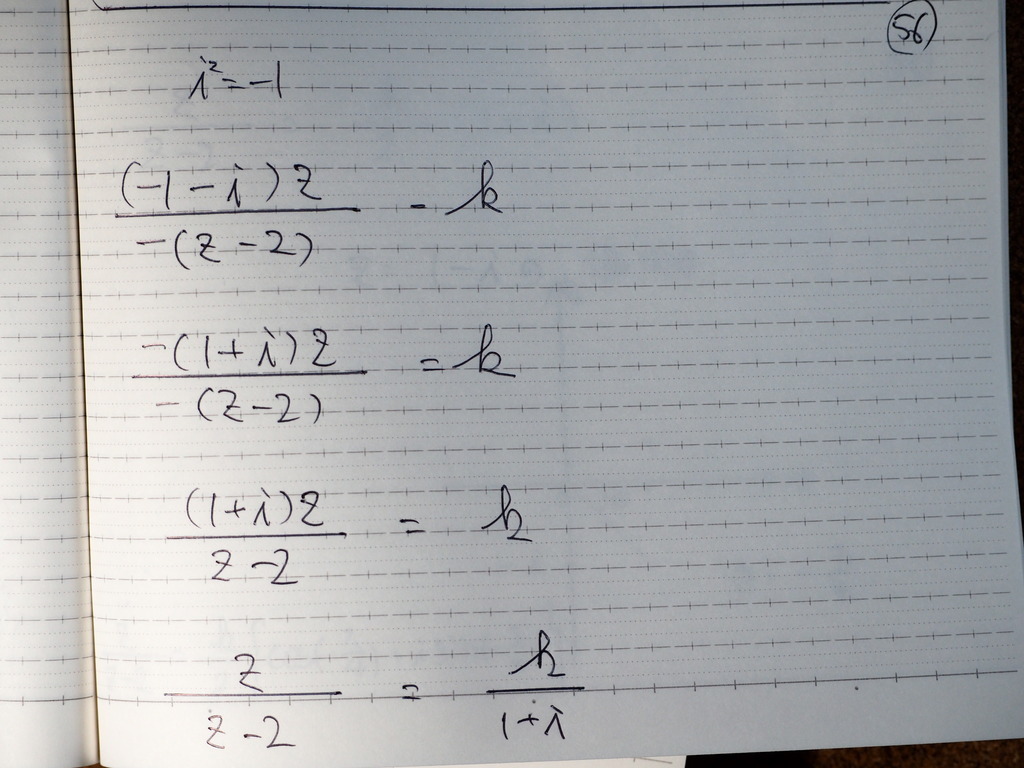 56
i²=-1
(-1-i)z / -(z-2) - k
-(1+i)z / -(z-2) = k
(1+i)z / z-2 = k
z / z-2 = k / 1+i